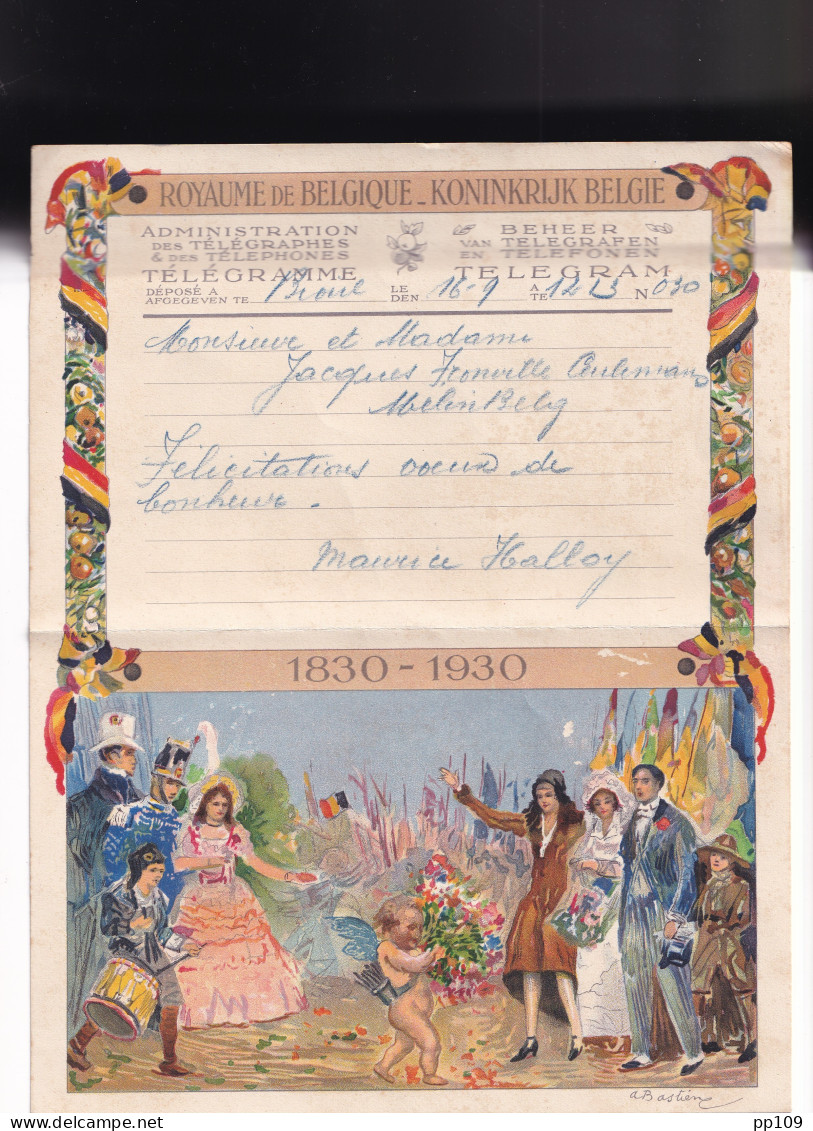 ROYAUME DE BELGIQUE - KONINKRIJK BELGIE
ADMINISTRATION
DES TÉLÉGRAPHES
& DES TÉLÉPHONES
TÉLÉGRAMME
BEHEER
VAN TELEGRAFEN
EN TELEFONEN
TELEGRAM
DÉPOSÉ A
AFGEGEVEN TE Bioul LE
DEN 16-9 A
TE 12 13 N 030
Monsieur et Madame
Jacques Fronville
Melin Belg
Félicitations voeux de
bonheur.
Maurice Halloy
1830 - 1930
aBastien
pp109